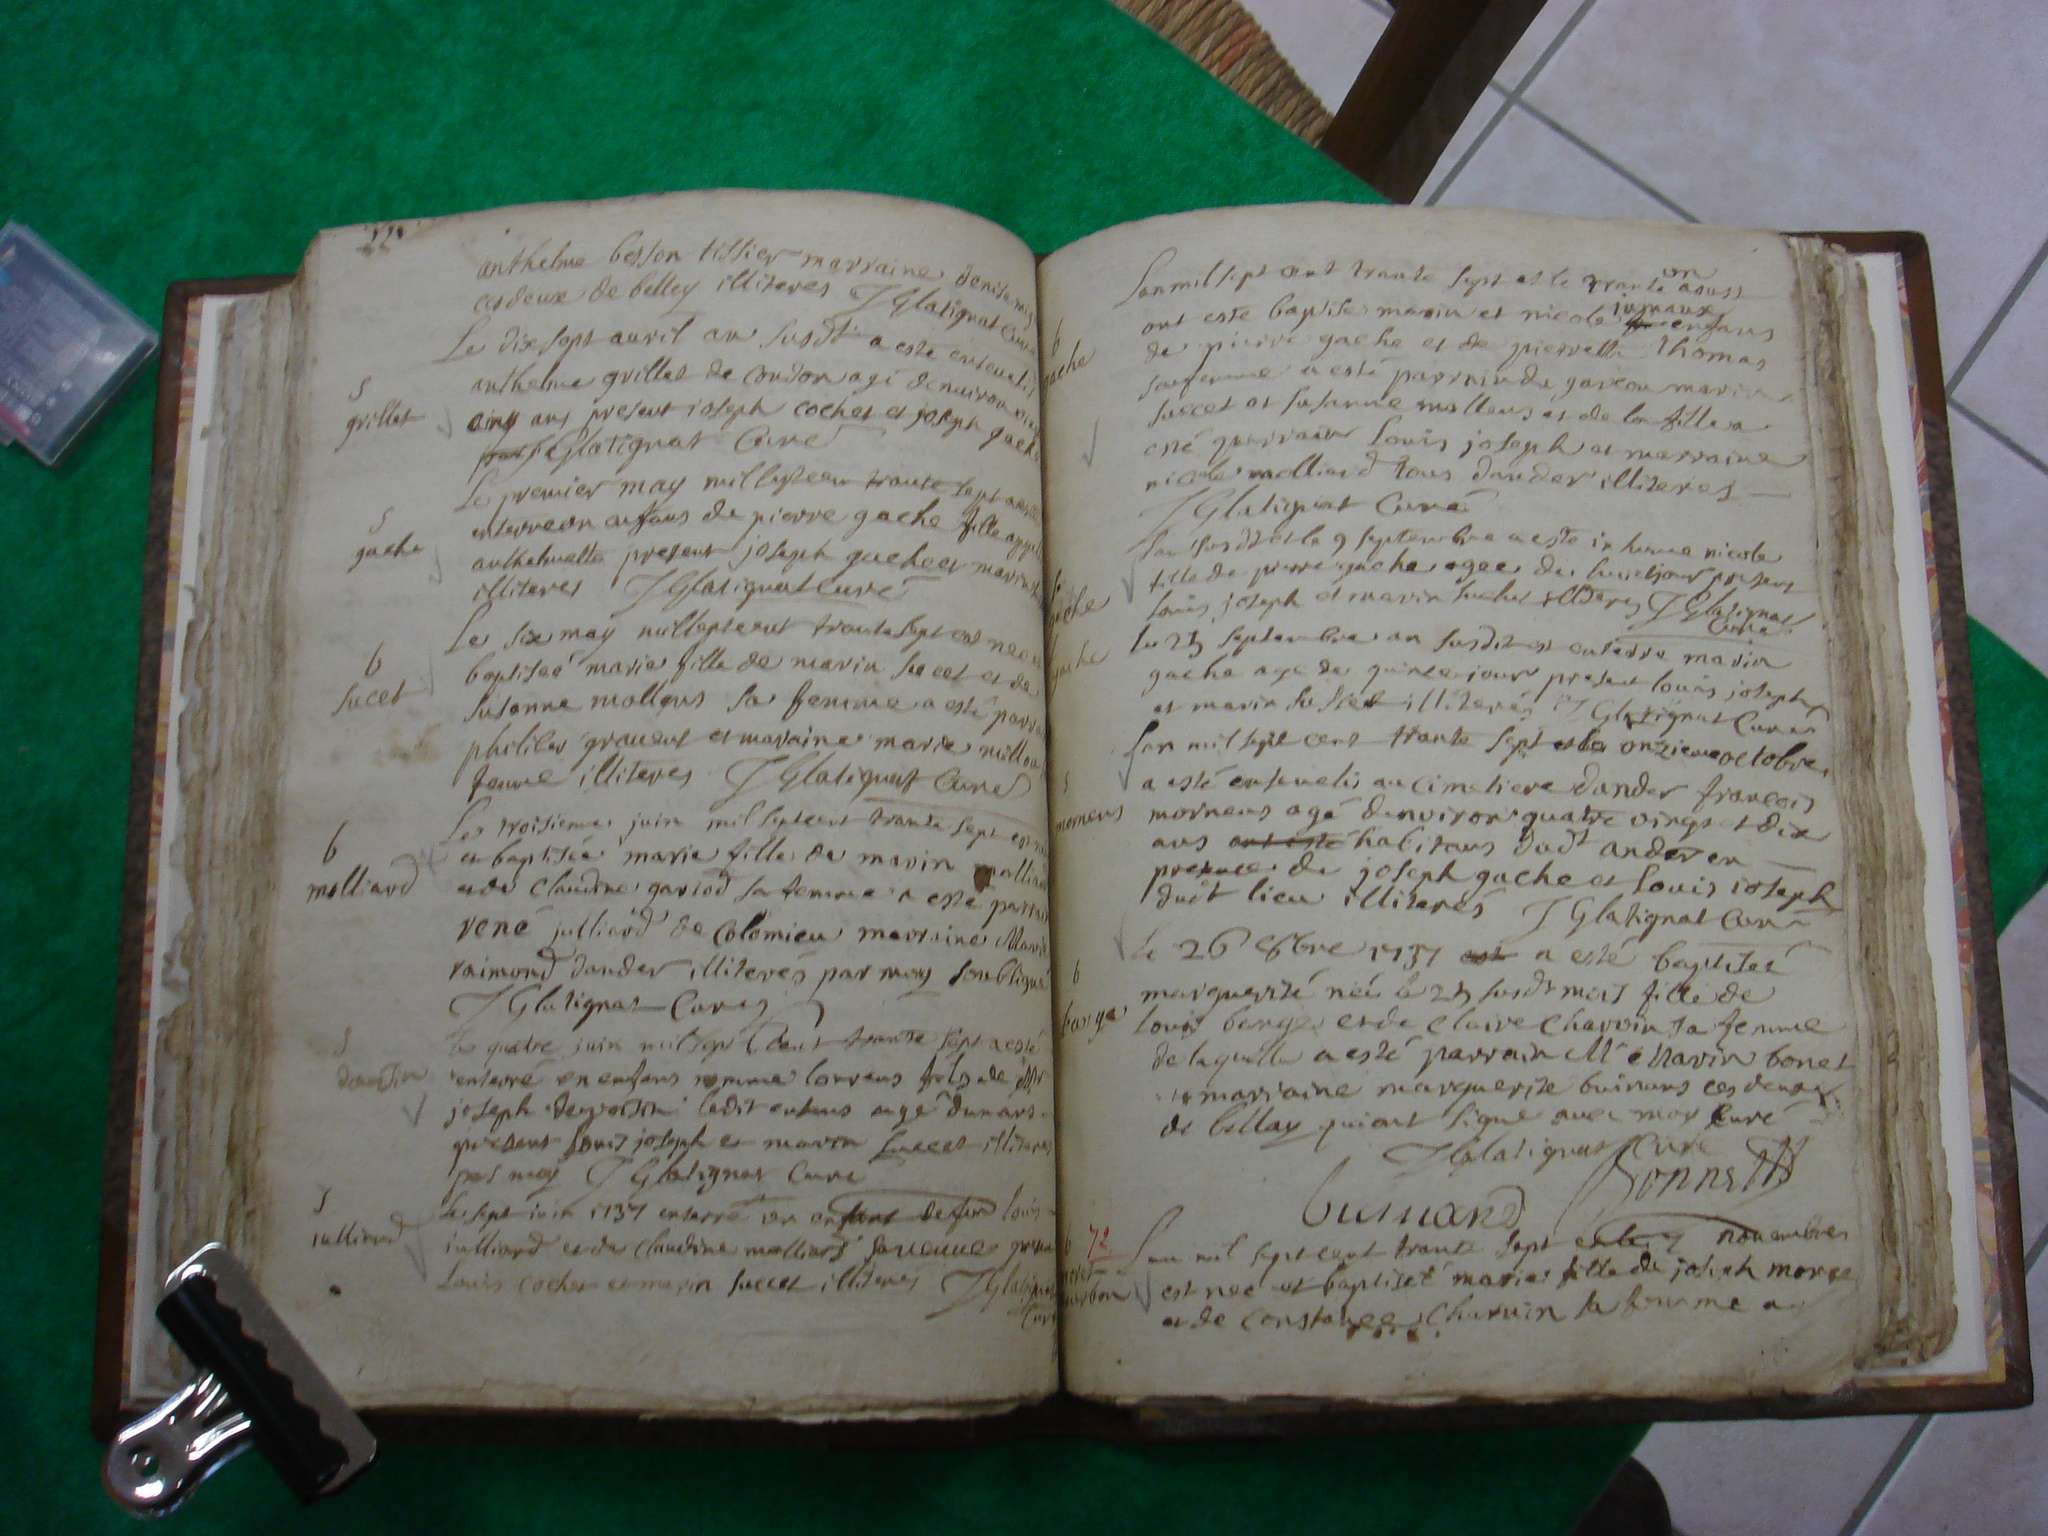 22
anthelme besson tissier marraine
ces deux de belley illiteres J Glatignat Curé
Le dix sept auril an susdt a esté enseueli
S
grillet
anthelme grillet de Condon agé denuiron
cinq ans present joseph cochet et joseph gache
J Glatignat Curé
Le premier may mil septcent trante sept a esté
S
gache
enterré un anfans de pierre gache fille
anthelmette present joseph gache et marin
illiteres J Glatignat Curé
Le six may mil septcent trante sept est nee
b
sucet
baptiseé marie fille de marin succet et de
susanne mollens sa femme a esté parra
philiber et maraine marie
femme illiteres J Glatignat Curé
Les troisieme juin mil septcent trante sept est né
b
molliard
et baptisée marie fille de marin molliar
et de Claudine gariod sa femme a esté parrain
rené julliard de Colomieu marraine Marie
raimond dander illiterés par moy soubsigné
J Glatignat Curé
Le quatre juin mil sept Cent trante sept a esté
S
enterré un enfans nomme lorrens fils de
joseph ledit enfans agé
presens Louis joseph et marin succet illiteres
par moy J Glatignat Curé
S
julliard
Le sept juin 1737 enterré un enfant de feu louis
julliard et de Claudine molliard sa veuue presen
Louis cochet et marin succet illiteres J Glatignat
Curé
Lan mil sept cent trante sept et le trante un aoust
ont esté baptises marin et nicole jumaux enfans
b
gache
de pierre gache et de pierrette Thomas
sa femme a esté parrain du garcon marin
succet et susanne mollens et de la fille a
esté parrain Louis joseph et marraine
nicole molliard tous dander illiteres
J Glatignat Curé
Lan susdt et le 9 septembre a esté inhumé nicole
fille de pierre gache agee de huict jour presens
gache
louis joseph et marin suchet illiteres J Glatignat
Curé
gache
Le 25 septembre an susdit est enterré marin
gache agé de quinze jour present louis joseph
et marin succet illiterés J Glatignat Curé
Lan mil sept cent trante sept et le onzieme octobre
S
mornens
a esté enseuelis au cimetiere dander francois
mornens agé denuiron quatre vingt et dix
ans habitans dudt ander en
presence de joseph gache et louis joseph
dudt lieu illiterés J Glatignat Curé
Le 26 8bre 1737 a esté baptiseé
b
barge
marguerite née le 25 susdt mois fille de
louis barge et de Claire Charvin sa femme
de laquelle a esté parrain Mre Marin bonet
et marraine marguerite buinans ces deux
de bellay qui ont signé auec moy Curé
J Glatignat Curé
buinand Bonnet
b 72
Lan mil sept cent trante sept et le 7 nouembre
est nee et baptiseé marie fille de joseph morge
et de Constance Charuin sa femme a